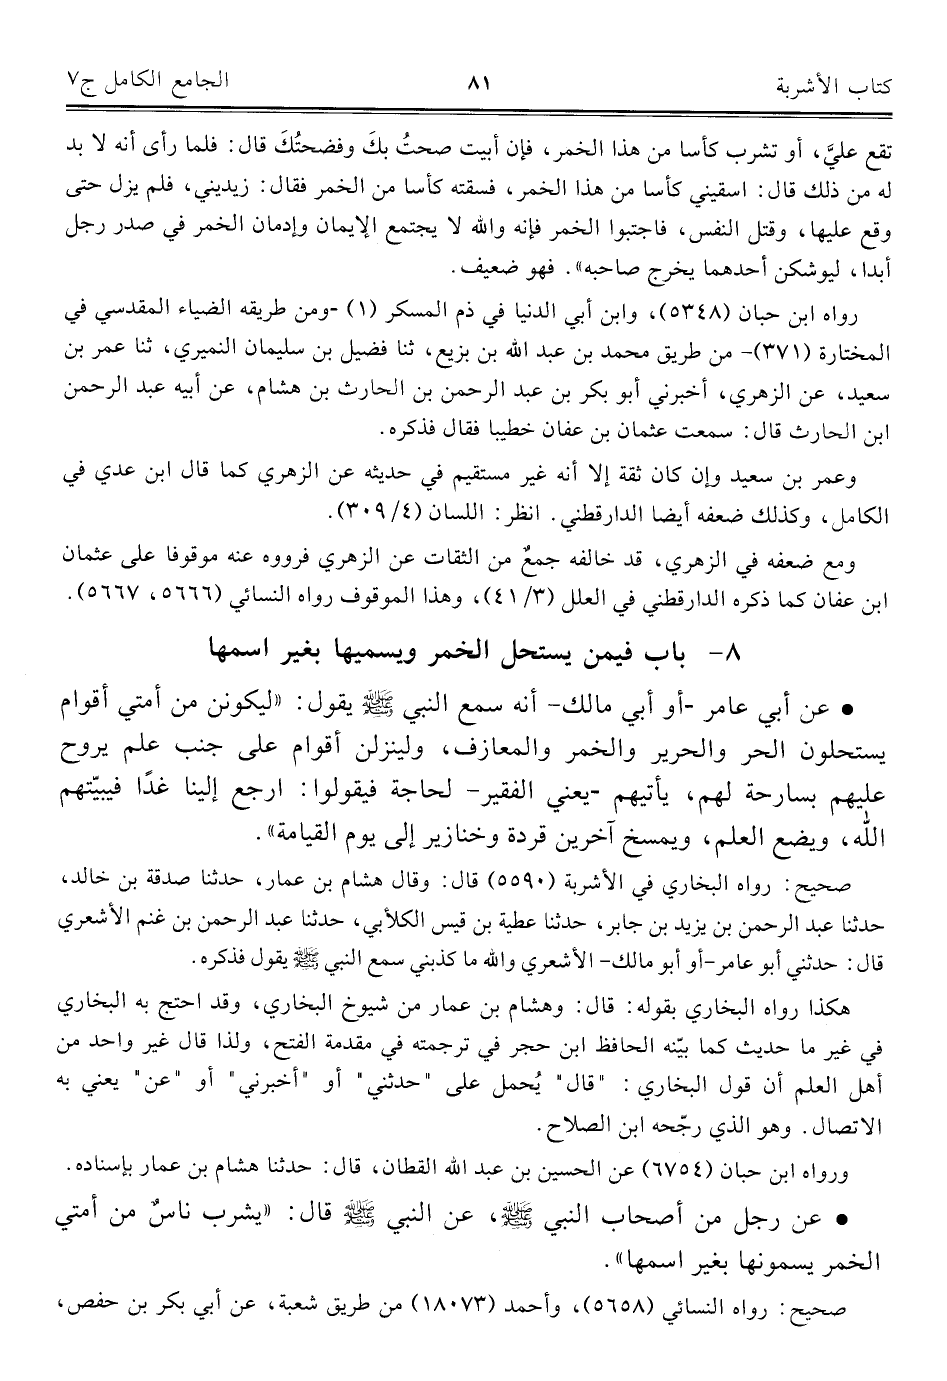 كتاب الأشربة ٨١ الجامع الكامل ج٧
تقع عليَّ، أو تشرب كأسا من هذا الخمر، فإن أبيت صحتُ بكَ وفضحتُكَ قال: فلما رأى أنه لا بد
له من ذلك قال: اسقيني كأسا من هذا الخمر، فسقته كأسا من الخمر فقال: زيديني، فلم يزل حتى
وقع عليها، وقتل النفس، فاجتبوا الخمر فإنه والله لا يجتمع الإيمان وإدمان الخمر في صدر رجل
أبدا، ليوشكن أحدهما يخرج صاحبه». فهو ضعيف.
رواه ابن حبان (٥٣٤٨)، وابن أبي الدنيا في ذم المسكر (١) -ومن طريقه الضياء المقدسي في
المختارة (٣٧١)- من طريق محمد بن عبد الله بن بزيع، ثنا فضيل بن سليمان النميري، ثنا عمر بن
سعيد، عن الزهري، أخبرني أبو بكر بن عبد الرحمن بن الحارث بن هشام، عن أبيه عبد الرحمن
ابن الحارث قال: سمعت عثمان بن عفان خطيبا فقال فذكره.
وعمر بن سعيد وإن كان ثقة إلا أنه غير مستقيم في حديثه عن الزهري كما قال ابن عدي في
الكامل، وكذلك ضعفه أيضا الدارقطني. انظر: اللسان (٤/ ٣٠٩).
ومع ضعفه في الزهري، قد خالفه جمعٌ من الثقات عن الزهري فرووه عنه موقوفا على عثمان
ابن عفان كما ذكره الدارقطني في العلل (٣/ ٤١)، وهذا الموقوف رواه النسائي (٥٦٦٦، ٥٦٦٧).
٨- باب فيمن يستحل الخمر ويسميها بغير اسمها
• عن أبي عامر -أو أبي مالك- أنه سمع النبي ﷺ يقول: «ليكونن من أمتي أقوام
يستحلون الحر والحرير والخمر والمعازف، ولينزلن أقوام على جنب علم يروح
عليهم بسارحة لهم، يأتيهم -يعني الفقير- لحاجة فيقولوا: ارجع إلينا غدًا فيبيّتهم
الله، ويضع العلم، ويمسخ آخرين قردة وخنازير إلى يوم القيامة».
صحيح: رواه البخاري في الأشربة (٥٥٩٠) قال: وقال هشام بن عمار، حدثنا صدقة بن خالد،
حدثنا عبد الرحمن بن يزيد بن جابر، حدثنا عطية بن قيس الكلأبي، حدثنا عبد الرحمن بن غنم الأشعري
قال: حدثني أبو عامر-أو أبو مالك- الأشعري والله ما كذبني سمع النبي ﷺ يقول فذكره.
هكذا رواه البخاري بقوله: قال: وهشام بن عمار من شيوخ البخاري، وقد احتج به البخاري
في غير ما حديث كما بيّنه الحافظ ابن حجر في ترجمته في مقدمة الفتح، ولذا قال غير واحد من
أهل العلم أن قول البخاري : "قال" يُحمل على "حدثني" أو "أخبرني" أو "عن" يعني به
الاتصال. وهو الذي رجّحه ابن الصلاح.
ورواه ابن حبان (٦٧٥٤) عن الحسين بن عبد الله القطان، قال: حدثنا هشام بن عمار بإسناده.
• عن رجل من أصحاب النبي ﷺ، عن النبي ﷺ قال: «يشرب ناسٌ من أمتي
الخمر يسمونها بغير اسمها».
صحيح: رواه النسائي (٥٦٥٨)، وأحمد (١٨٠٧٣) من طريق شعبة، عن أبي بكر بن حفص،